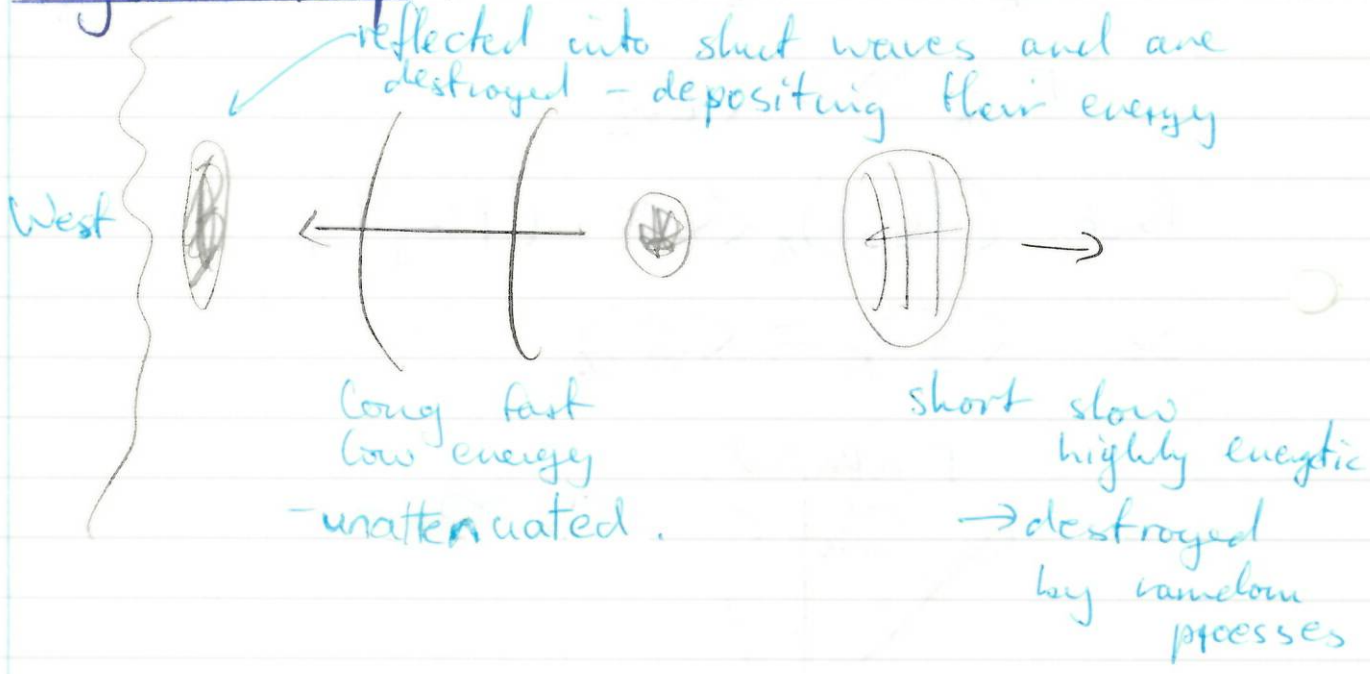 reflected into short waves and are
destroyed - depositing their energy
West
long fast
low energy
- unattenuated.
short slow
highly energetic
→ destroyed
by random
processes